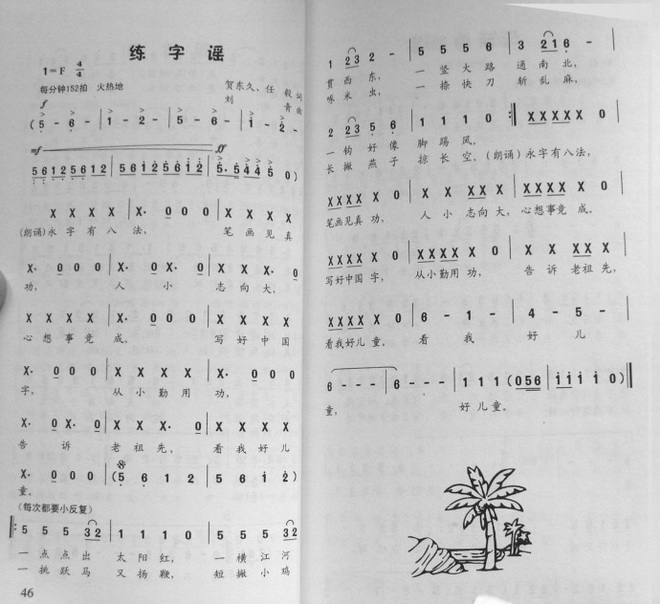 练字谣
1=F 4/4
每分钟152拍 火热地
贺东久、任 毅 词
刘 青 曲
f
( 5 - 6 - | 1 - 2 - | 5 - 6 - | 1 - 2 -
mf ff
5612 5612 5612 5612 | 5612 5612 5612 5612 | 5· 5 4 4 5 0 )
X X X X | X· 0 0 0 | X X X X
(朗诵)永字有八法， 笔画见真
X· 0 0 0 | X· 0 X· 0 | X· 0 X· 0
功， 人 小 志向大，
X X X X | X· 0 0 0 | X X X X
心想事竟 成。 写好中国
X· 0 0 0 | X X X X | X· 0 0 0
字， 从小勤用 功，
X· 0 X· 0 | X X X· 0 | X X X X
告 诉 老祖先， 看我好儿
X· 0 0 0 | (5 6 1 2 | 5 6 1 2)
童。
(每次都要小反复)
5 5 5 3 2 | 1 1 1 0 | 5 5 5 3 2
一点点出 太阳红， 一横江河
一挑跃马 又扬鞭， 短撇小鸡
46
1 2 3 2 - | 5 5 5 5 | 3 2 1 6 -
贯西东， 一竖大路 通南北，
啄米虫， 一捺快刀 斩乱麻，
2 2 3 6 6 | 1 2 1 0 :| XXXX X 0
一钩好像 脚踢风。
长撇燕子 掠长空，(朗诵)永字有八法，
XXXX X 0 | X X XX X | XXXX X 0
笔画见真 功， 人小志向大，心想事竟 成。
XXXX X 0 | XXXX X 0 | X X XX X
写好中国 字， 从小勤用 功， 告诉 老祖先，
XXXX X 0 | 6 - 1 - | 4 - 5 -
看我好儿 童， 看 我 好 儿
6 - - - | 6 - - - | 1 1 1 (0 5 6 | 1· 1 1 1 1 0) ||
童， 好儿童。